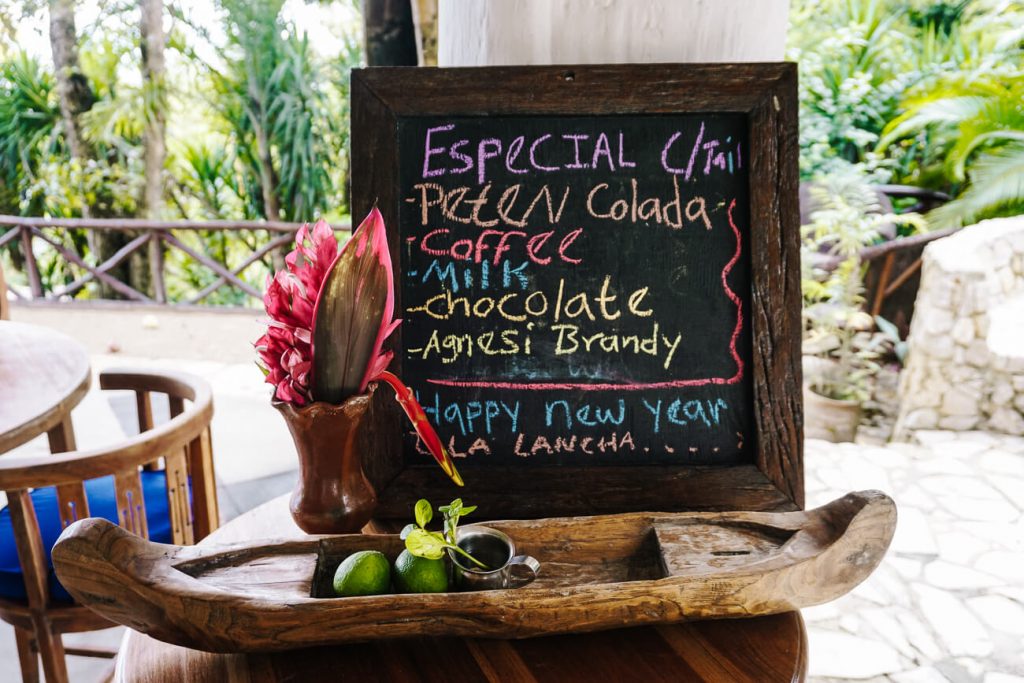 Especial c/Tail
-Peten Colada-
-Coffee
-Milk
-chocolate
-Agnesi Brandy
Happy new year
LA LANCHA. . . .